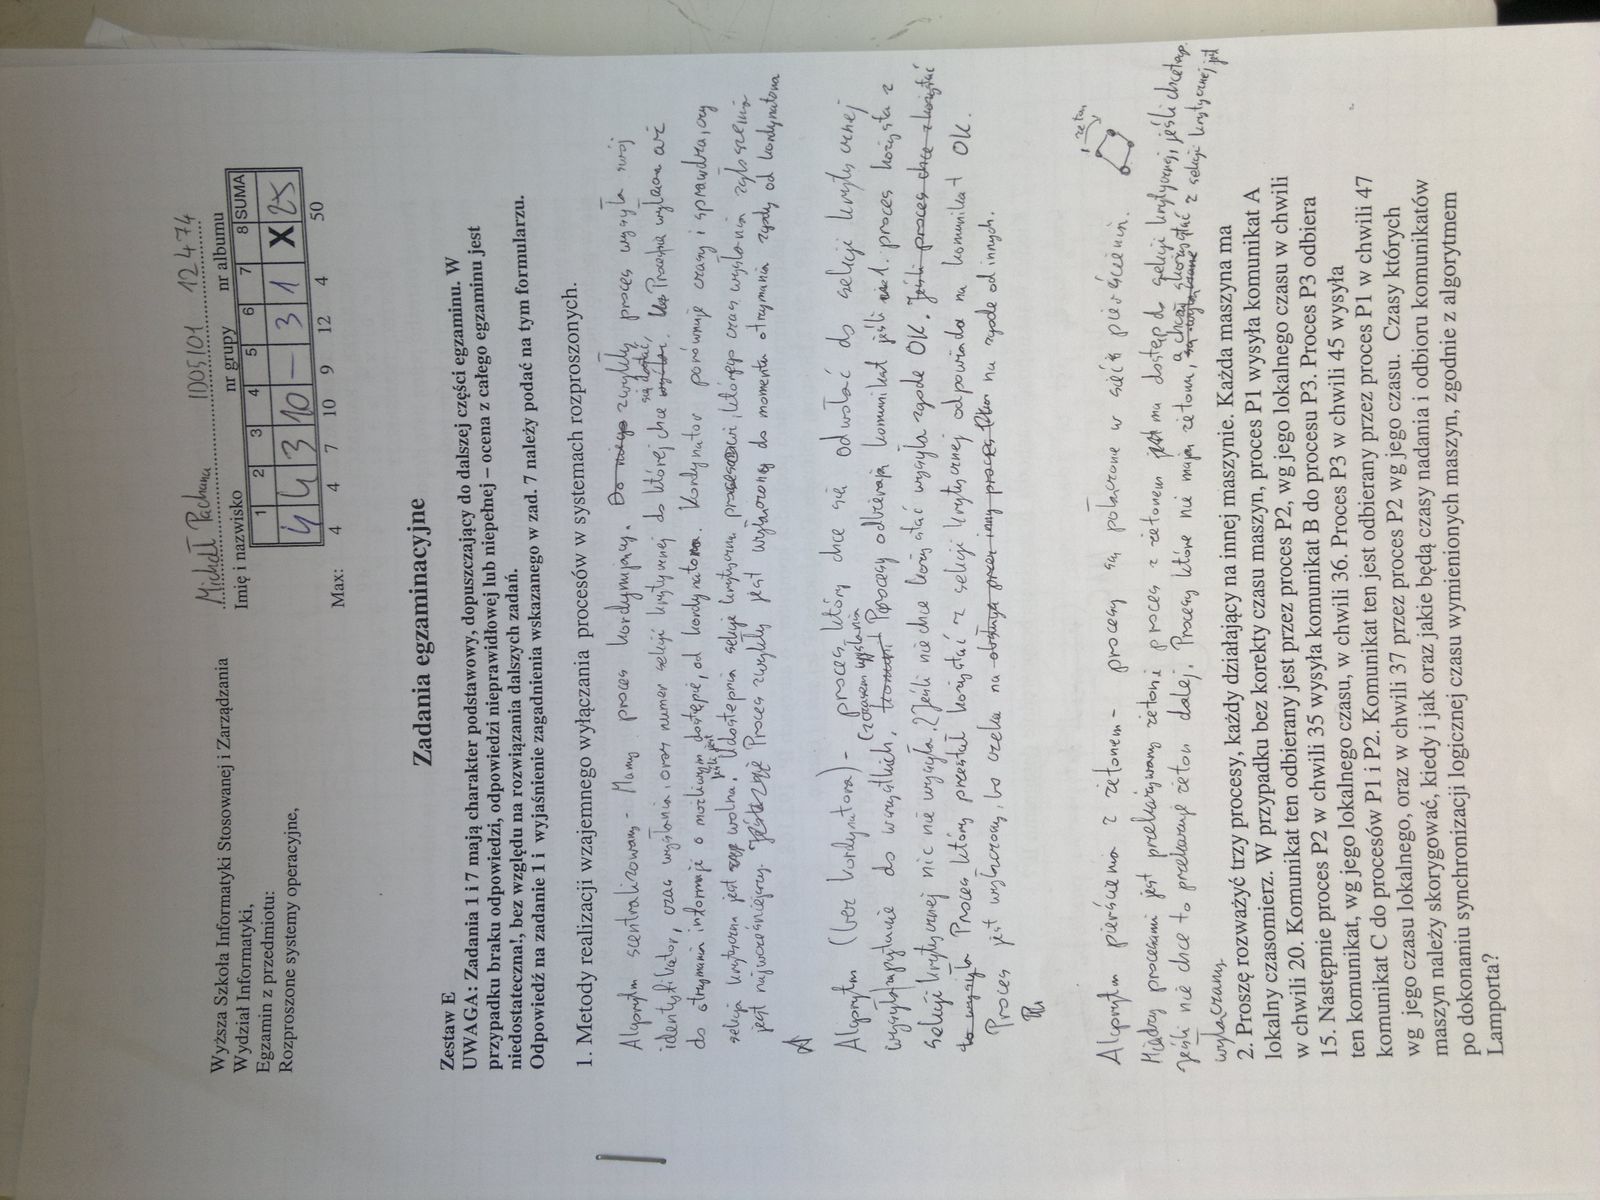 Wyższa Szkoła Informatyki Stosowanej i Zarządzania
Wydział Informatyki,
Egzamin z przedmiotu:
Rozproszone systemy operacyjne,
Michał Pachana ID05IO1 12474
Imię i nazwisko nr grupy nr albumu
1 2 3 4 5 6 7 8 SUMA
4 4 3 10 – 3 1 X 25
Max: 4 4 7 10 9 12 4 50
Zadania egzaminacyjne
Zestaw E
UWAGA: Zadania 1 i 7 mają charakter podstawowy, dopuszczający do dalszej części egzaminu. W
przypadku braku odpowiedzi, odpowiedzi nieprawidłowej lub niepełnej – ocena z całego egzaminu jest
niedostateczna!, bez względu na rozwiązania dalszych zadań.
Odpowiedź na zadanie 1 i wyjaśnienie zagadnienia wskazanego w zad. 7 należy podać na tym formularzu.
1. Metody realizacji wzajemnego wyłączania procesów w systemach rozproszonych.
Algorytm scentralizowany - Mamy proces kordynujący. Do niego zwykły proces wysyła swój
identyfikator, czas wysłania, oraz numer sekcji krytycznej do której chce się dostać, Proces wyłącza aż
do otrzymania informacji o możliwym dostępie, od kordynatora. Kordynator porównuje czasy i sprawdza, czy
sekcja krytyczna jest wolna. Jeśli jest Udostępnia sekcję krytyczną procesowi, którego czas wysłania zgłoszenia
jest najwcześniejszy. Proces zwykły jest wyłączony do momentu otrzymania zgody od kordynatora
Algorytm (bez kordynatora) - proces, który chce się odwołać do sekcji krytycznej
wysyła zapytanie do wszystkich, (z czasem wysłania Procesy odbierają komunikat jeśli proces korzysta z
sekcji krytycznej nic nie wysyła. Jeśli nie chce korzystać wysyła zgodę OK. Jeśli proces chce skorzystać
to wysyła Proces który przestał korzystać z sekcji krytycznej odpowiada na komunikat OK.
Proces jest wyłączony, bo czeka na zgodę od innych.
Algorytm pierścienia z żetonem - procesy są połączone w sieć pierścienia.
żeton
Między procesami jest przekazywany żeton i proces z żetonem ma dostęp do sekcji krytycznej, jeśli chce
Jeśli nie chce to przekazuje żeton dalej. Procesy które nie mają żetonu, a chcą skorzystać z sekcji krytycznej
wyłączany.
2. Proszę rozważyć trzy procesy, każdy działający na innej maszynie. Każda maszyna ma
lokalny czasomierz. W przypadku bez korekty czasu maszyn, proces P1 wysyła komunikat A
w chwili 20. Komunikat ten odbierany jest przez proces P2, wg jego lokalnego czasu w chwili
15. Następnie proces P2 w chwili 35 wysyła komunikat B do procesu P3. Proces P3 odbiera
ten komunikat, wg jego lokalnego czasu, w chwili 36. Proces P3 w chwili 45 wysyła
komunikat C do procesów P1 i P2. Komunikat ten jest odbierany przez proces P1 w chwili 47
wg jego czasu lokalnego, oraz w chwili 37 przez proces P2 wg jego czasu. Czasy których
maszyn należy skorygować, kiedy i jak oraz jakie będą czasy nadania i odbioru komunikatów
po dokonaniu synchronizacji logicznej czasu wymienionych maszyn, zgodnie z algorytmem
Lamporta?